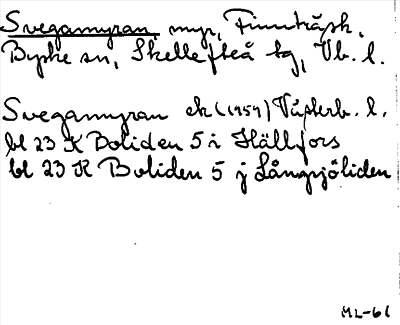 Svegamyran, myr, Finnträsk,
Byske sn, Skellefteå tg, Vb. l.
Svegamyran ek (1959) Västerb. l.
bl 23 K Boliden 5 i Hällfors
bl 23 K Boliden 5 j Långsjöliden
ML-61